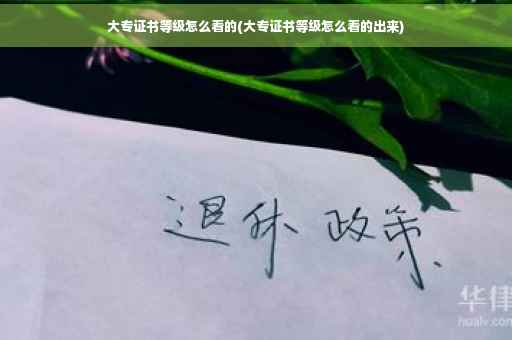 大专证书等级怎么看的(大专证书等级怎么看的出来)
退休 政策
华律